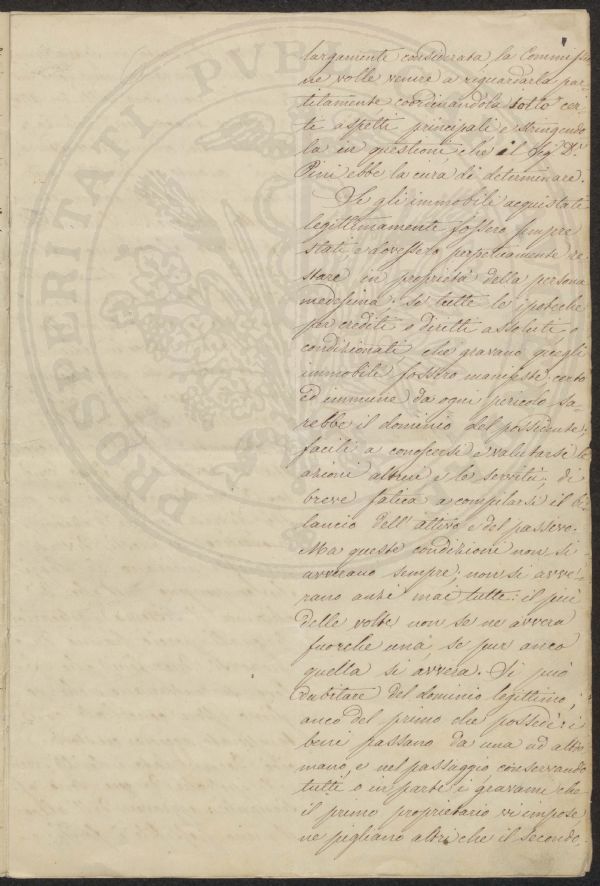 PROSPERITATI PVB
largamente considerata, la Commissio
ne volle venire a riguardarla par-
titamente coordinandola sotto cer-
ti aspetti principali e stringendo
la in questioni che il Sig. Dr.
Pini ebbe la cura di determinare.
Se gli immobili acquistati
legittimamente fossero sempre
stati, e dovessero perpetuamente re-
stare in proprietà della persona
medesima. Se tutte le ipoteche
per crediti o diritti assoluti o
condizionati che gravano quegli
immobili fossero manifeste: certo
ed immune da ogni pericolo sa-
rebbe il dominio del possidente;
facili a conoscersi e valutarsi le
azioni altrui e le servitù; di
breve fatica a compilarsi il bi-
lancio dell'attivo e del passivo.
Ma queste condizioni non si
avverano sempre; non si avve-
rano anzi mai tutte: il più
delle volte non se ne avvera
fuorche una, se pur anco
quella si avvera. Si può
dubitare del dominio legittimo,
anco del primo che possedè: i
beni passano da una ad altra
mano, e nel passaggio, conservando
tutti o in parte i gravami che
il primo proprietario vi impose
ne pigliano altri che il secondo,